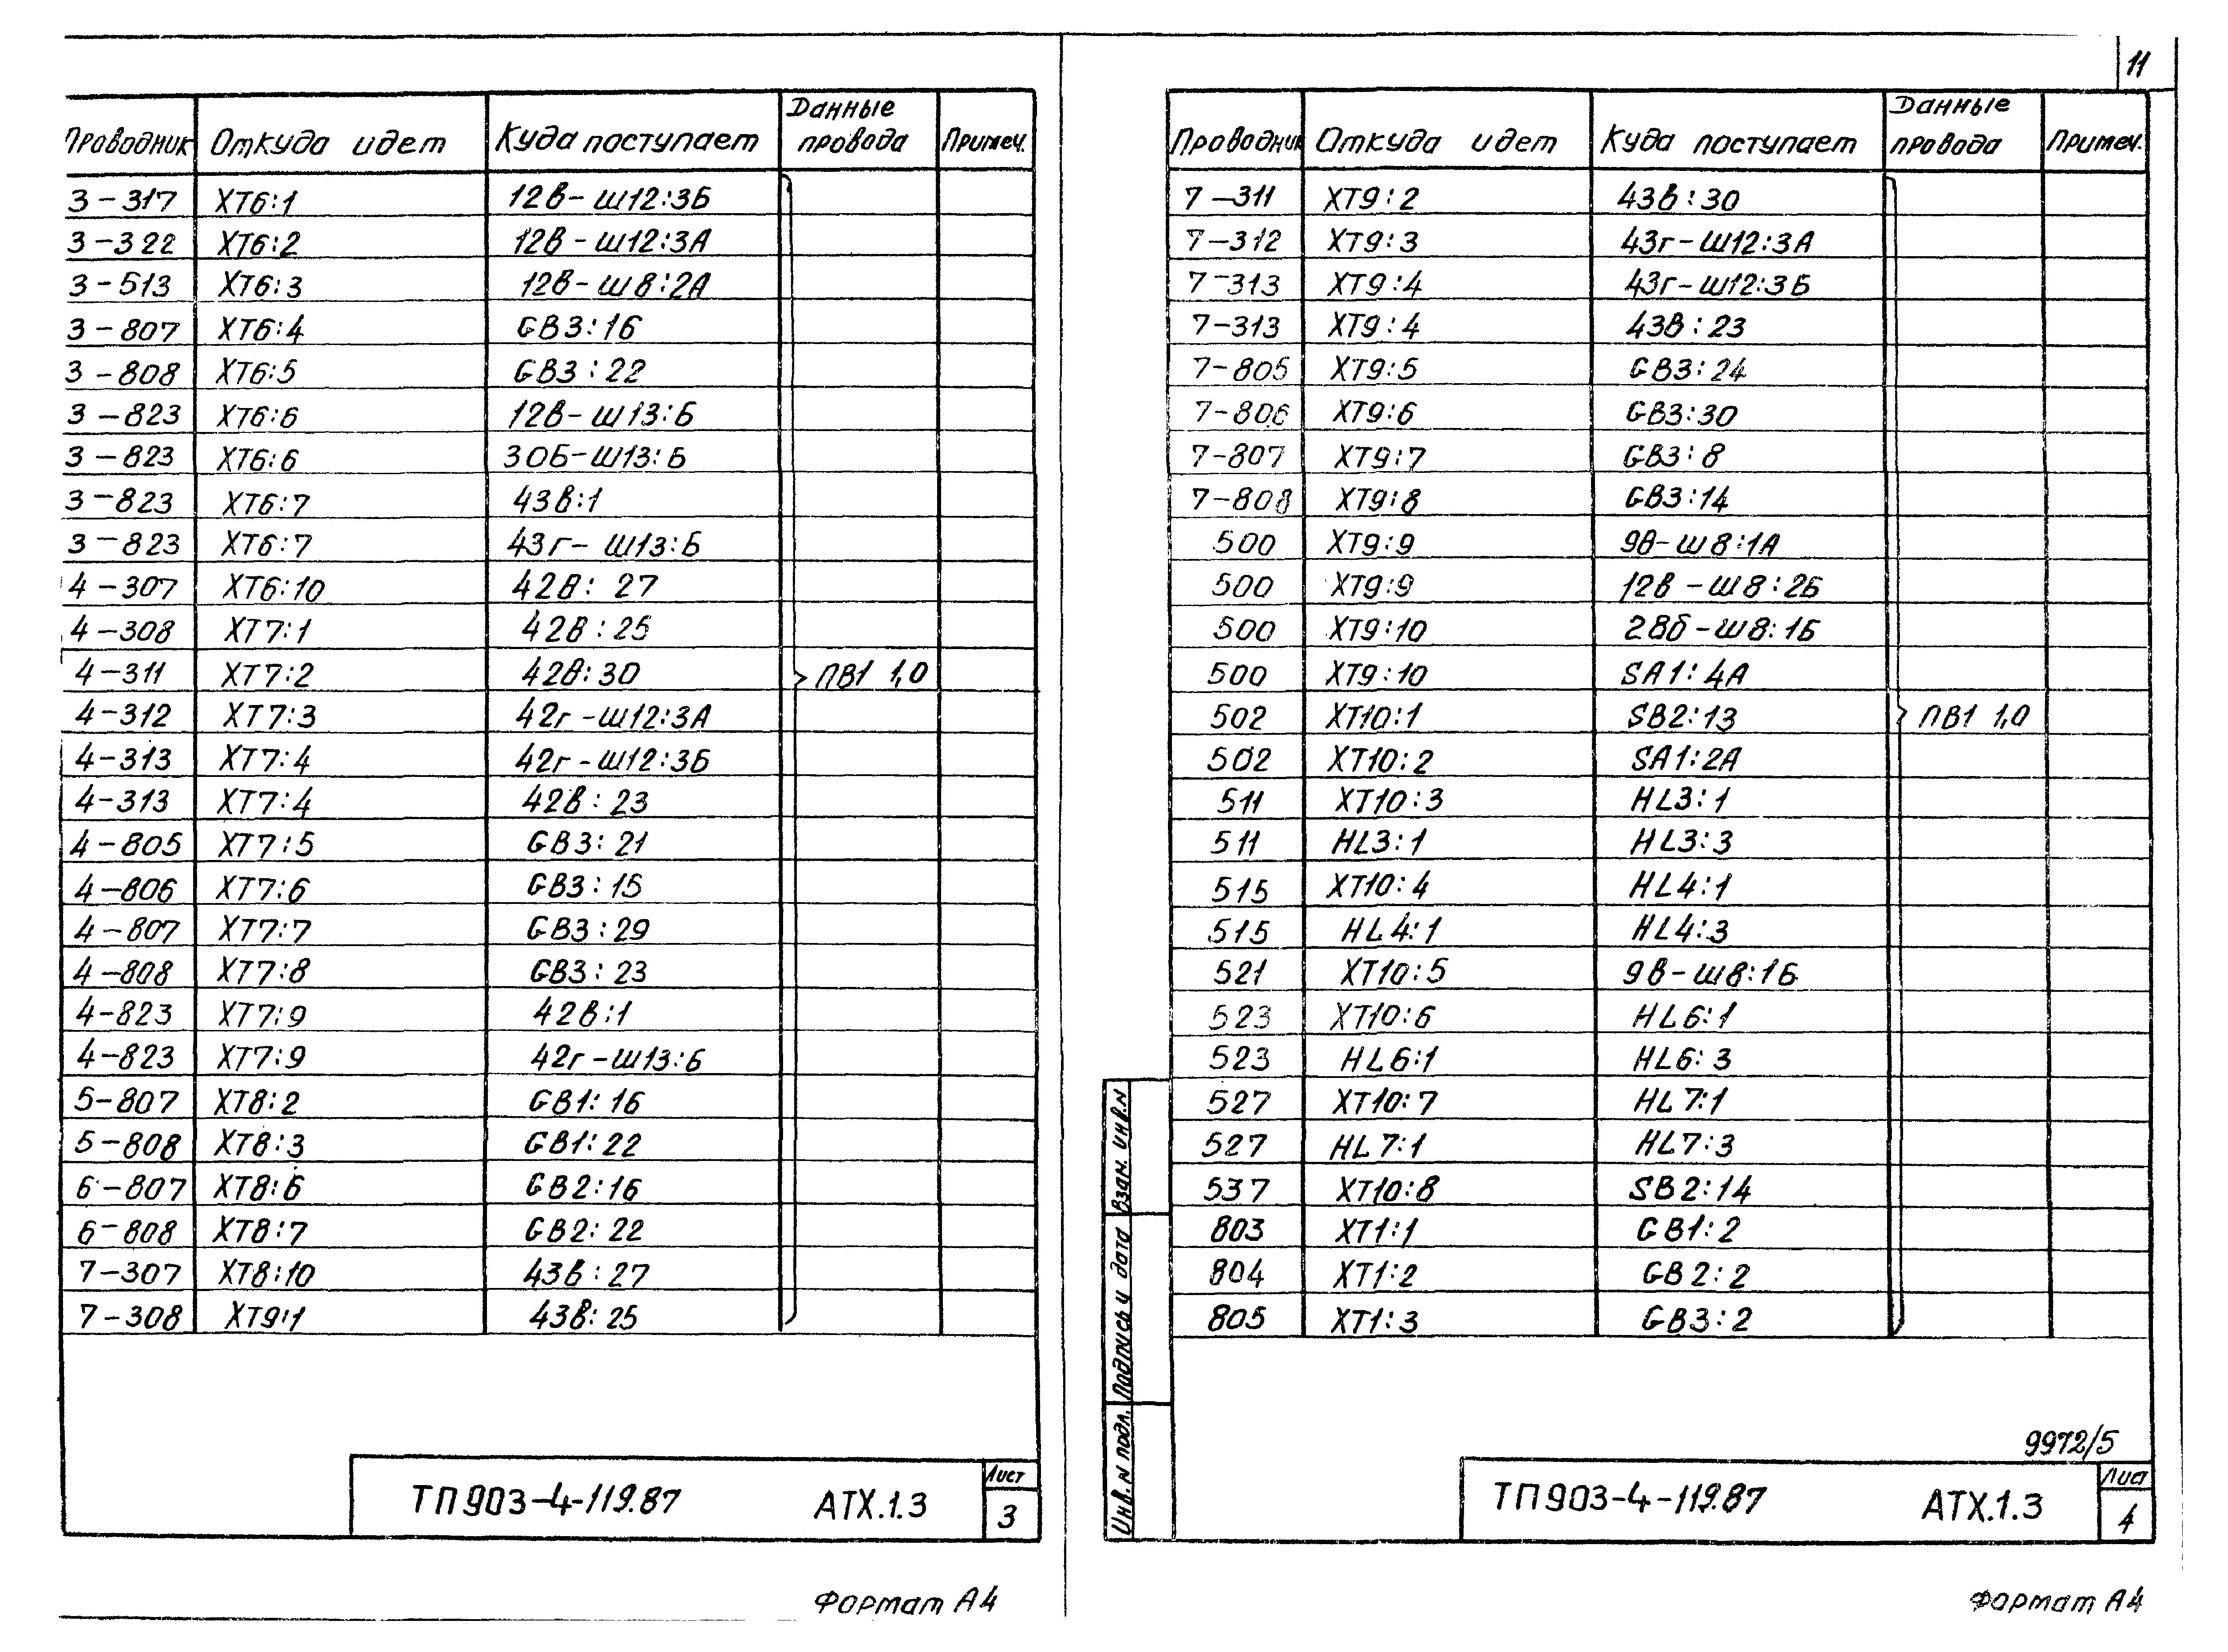 Проводник Откуда идет Куда поступает Данные провода Примеч.
3-317 ХТ6:1 12в-Ш12:3Б
3-322 ХТ6:2 12в-Ш12:3А
3-513 ХТ6:3 12в-Ш8:2А
3-807 ХТ6:4 GB3:16
3-808 ХТ6:5 GB3:22
3-823 ХТ6:6 12в-Ш13:Б
3-823 ХТ6:6 30Б-Ш13:Б
3-823 ХТ6:7 43в:1
3-823 ХТ6:7 43г-Ш13:Б
4-307 ХТ6:10 42в:27
4-308 ХТ7:1 42в:25
4-311 ХТ7:2 42в:30 ПВ1 1,0
4-312 ХТ7:3 42г-Ш12:3А
4-313 ХТ7:4 42г-Ш12:3Б
4-313 ХТ7:4 42в:23
4-805 ХТ7:5 GB3:21
4-806 ХТ7:6 GB3:15
4-807 ХТ7:7 GB3:29
4-808 ХТ7:8 GB3:23
4-823 ХТ7:9 42в:1
4-823 ХТ7:9 42г-Ш13:Б
5-807 ХТ8:2 GB1:16
5-808 ХТ8:3 GB1:22
6-807 ХТ8:6 GB2:16
6-808 ХТ8:7 GB2:22
7-307 ХТ8:10 43в:27
7-308 ХТ9:1 43в:25
ТП903-4-119.87 АТХ.1.3
Лист
3
Формат А4
11
Проводник Откуда идет Куда поступает Данные провода Примеч.
7-311 ХТ9:2 43в:30
7-312 ХТ9:3 43г-Ш12:3А
7-313 ХТ9:4 43г-Ш12:3Б
7-313 ХТ9:4 43в:23
7-805 ХТ9:5 GB3:24
7-806 ХТ9:6 GB3:30
7-807 ХТ9:7 GB3:8
7-808 ХТ9:8 GB3:14
500 ХТ9:9 9в-Ш8:1А
500 ХТ9:9 12в-Ш8:2Б
500 ХТ9:10 28б-Ш8:1Б
500 ХТ9:10 SA1:4A
502 ХТ10:1 SB2:13 ПВ1 1,0
502 ХТ10:2 SA1:2A
511 ХТ10:3 HL3:1
511 HL3:1 HL3:3
515 ХТ10:4 HL4:1
515 HL4:1 HL4:3
521 ХТ10:5 9в-Ш8:1Б
523 ХТ10:6 HL6:1
523 HL6:1 HL6:3
527 ХТ10:7 HL7:1
527 HL7:1 HL7:3
537 ХТ10:8 SB2:14
803 ХТ1:1 GB1:2
804 ХТ1:2 GB2:2
805 ХТ1:3 GB3:2
Взам. инв.N
Подпись и дата
Инв.N подл.
9972/5
ТП903-4-119.87 АТХ.1.3
Лист
4
Формат А4